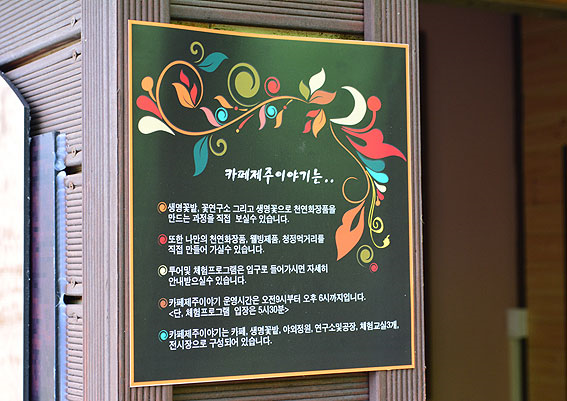 카페제주이야기는..
생명꽃밭, 꽃연구소 그리고 생명꽃으로 천연화장품을
만드는 과정을 직접 보실수 있습니다.
또한 나만의 천연화장품, 웰빙제품, 청정먹거리를
직접 만들어 가실수 있습니다.
투어및 체험프로그램은 입구로 들어가시면 자세히
안내받으실수 있습니다.
카페제주이야기 운영시간은 오전9시부터 오후 6시까지입니다.
<단, 체험프로그램 입장은 5시30분>
카페제주이야기는 카페, 생명꽃밭, 야외정원, 연구소및공장, 체험교실3개,
전시장으로 구성되어 있습니다.